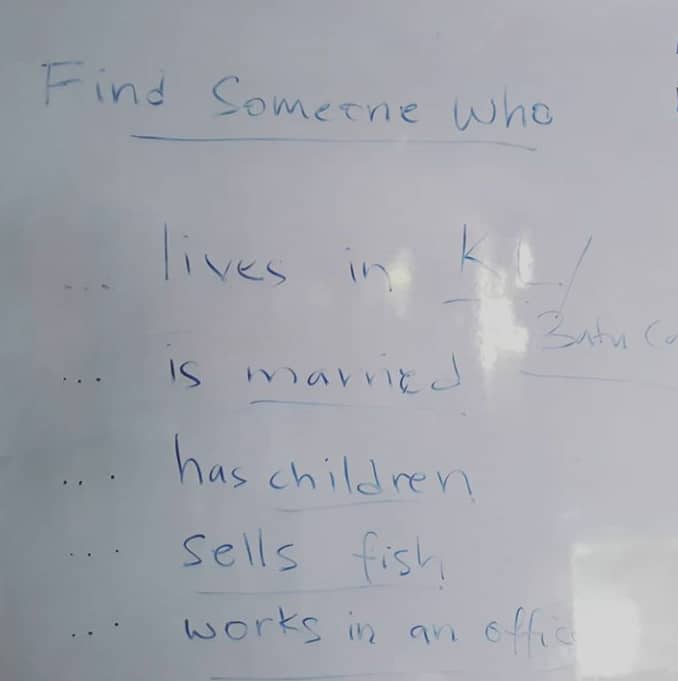 Find Someone Who
... lives in KL/
Batu
... is married
... has children
... sells fish
... works in an